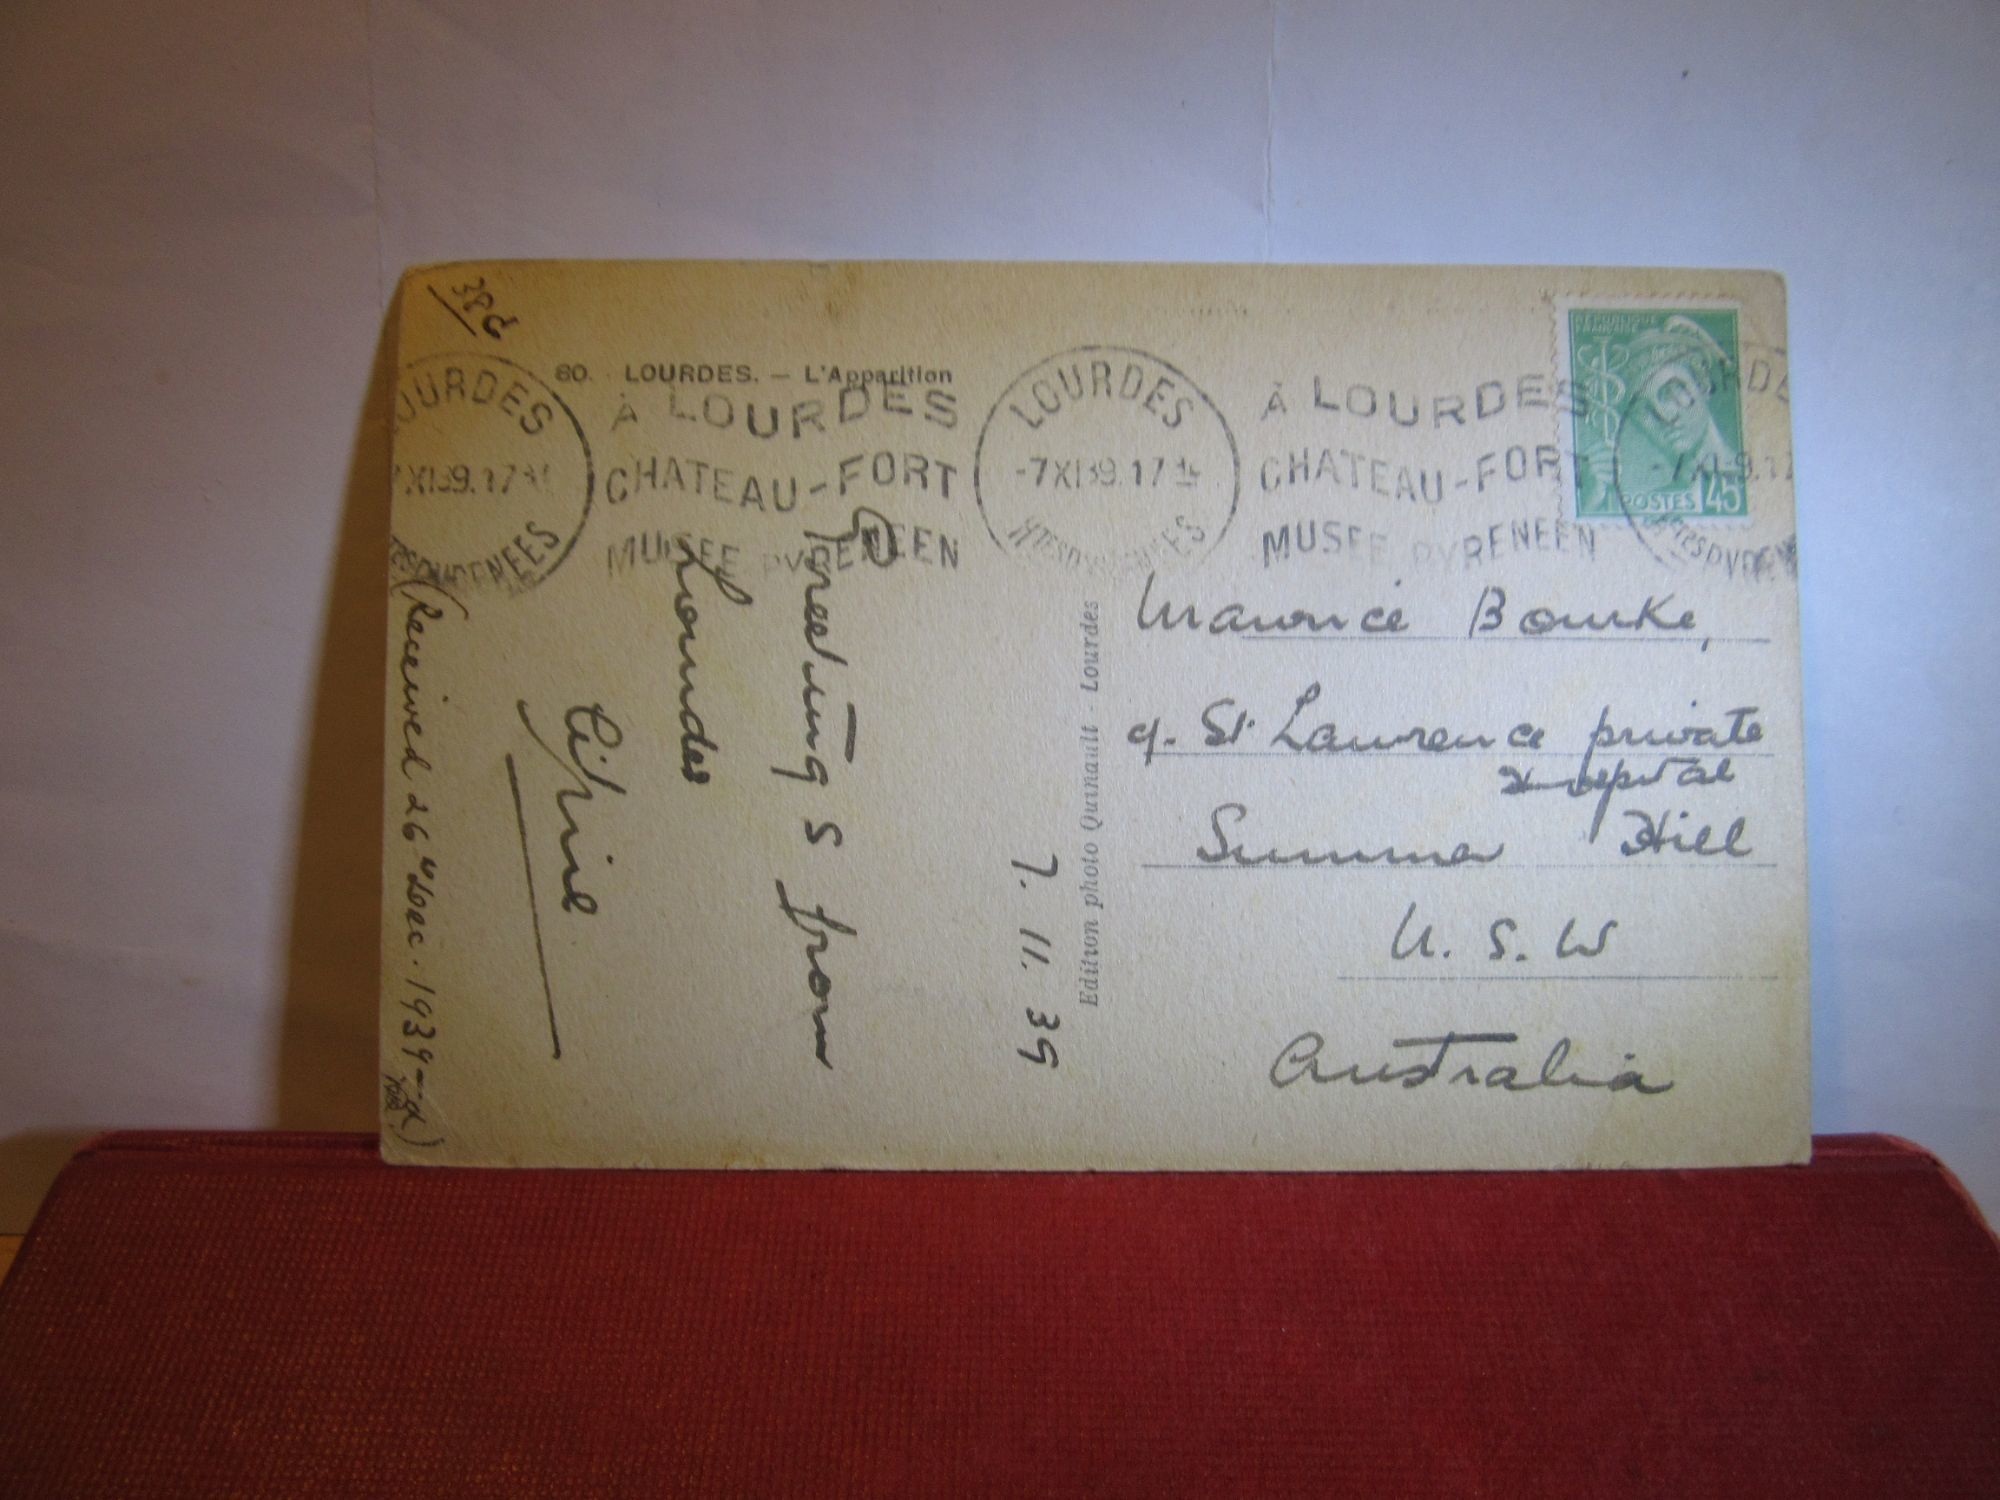 60. LOURDES. — L'Apparition
LOURDES
-7 XI 39. 17
Htes PYRENEES
À LOURDES
CHATEAU-FORT
MUSEE PYRENEEN
LOURDES
-7 XI 39. 17
Htes PYRENEES
À LOURDES
CHATEAU-FORT
MUSEE PYRENEEN
REPUBLIQUE
FRANCAISE
POSTES 45
7. 11. 39
Greetings from
Lourdes
(Received 26th Dec. 1939
Edition photo Quinault - Lourdes
Maurice Bourke,
c/. St. Lawrence private
Hospital
Summer Hill
N. S. W
Australia